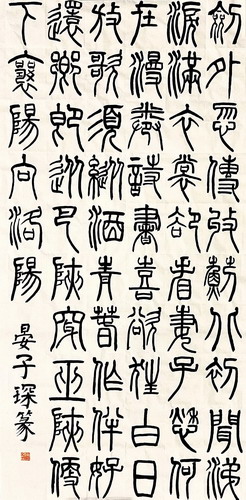 劍外忽傳收薊北初聞涕
淚滿衣裳卻看妻子愁何
在漫卷詩書喜欲狂白日
放歌須縱酒青春作伴好
還鄉即從巴峽穿巫峽便
下襄陽向洛陽
晏子琛篆